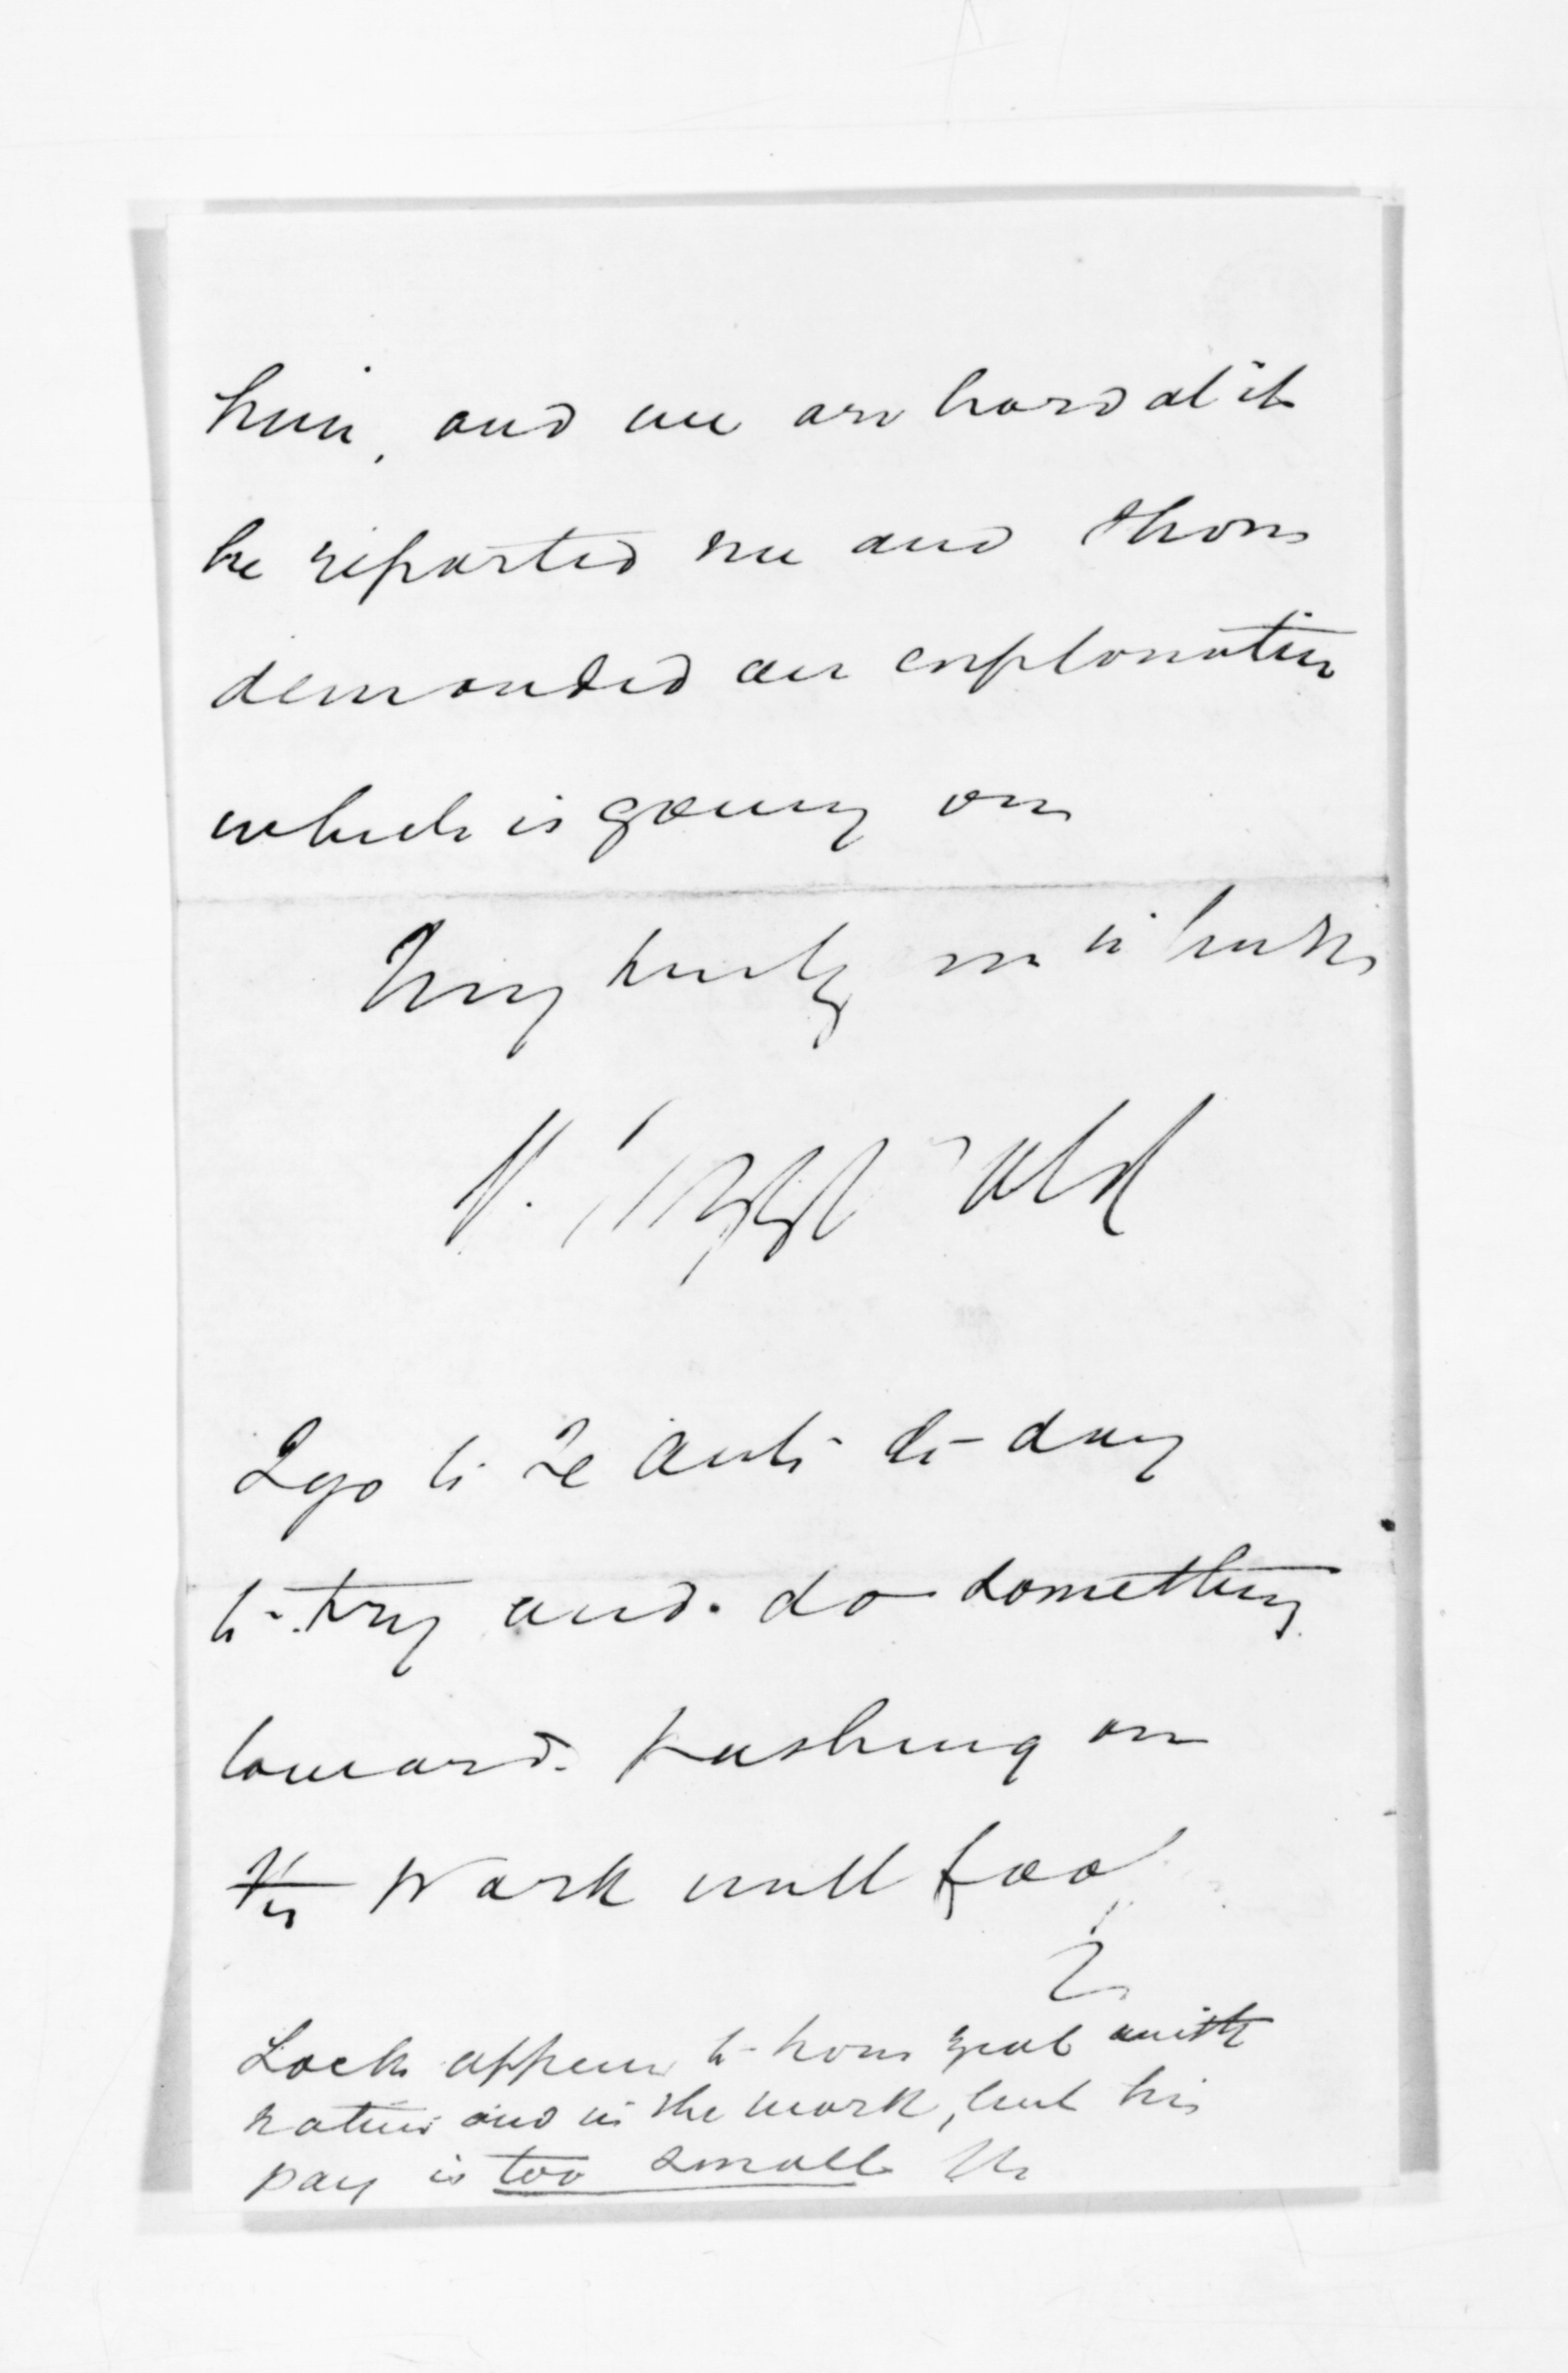 him, and we are hard at it
he reported me and I have
demanded an explanation
which is going on
Very truly in haste
I go to Te Aute to-day
to try and do something
toward pushing on
the work with
Locke appears to have great with
natives and in the work, but his
pay is too small